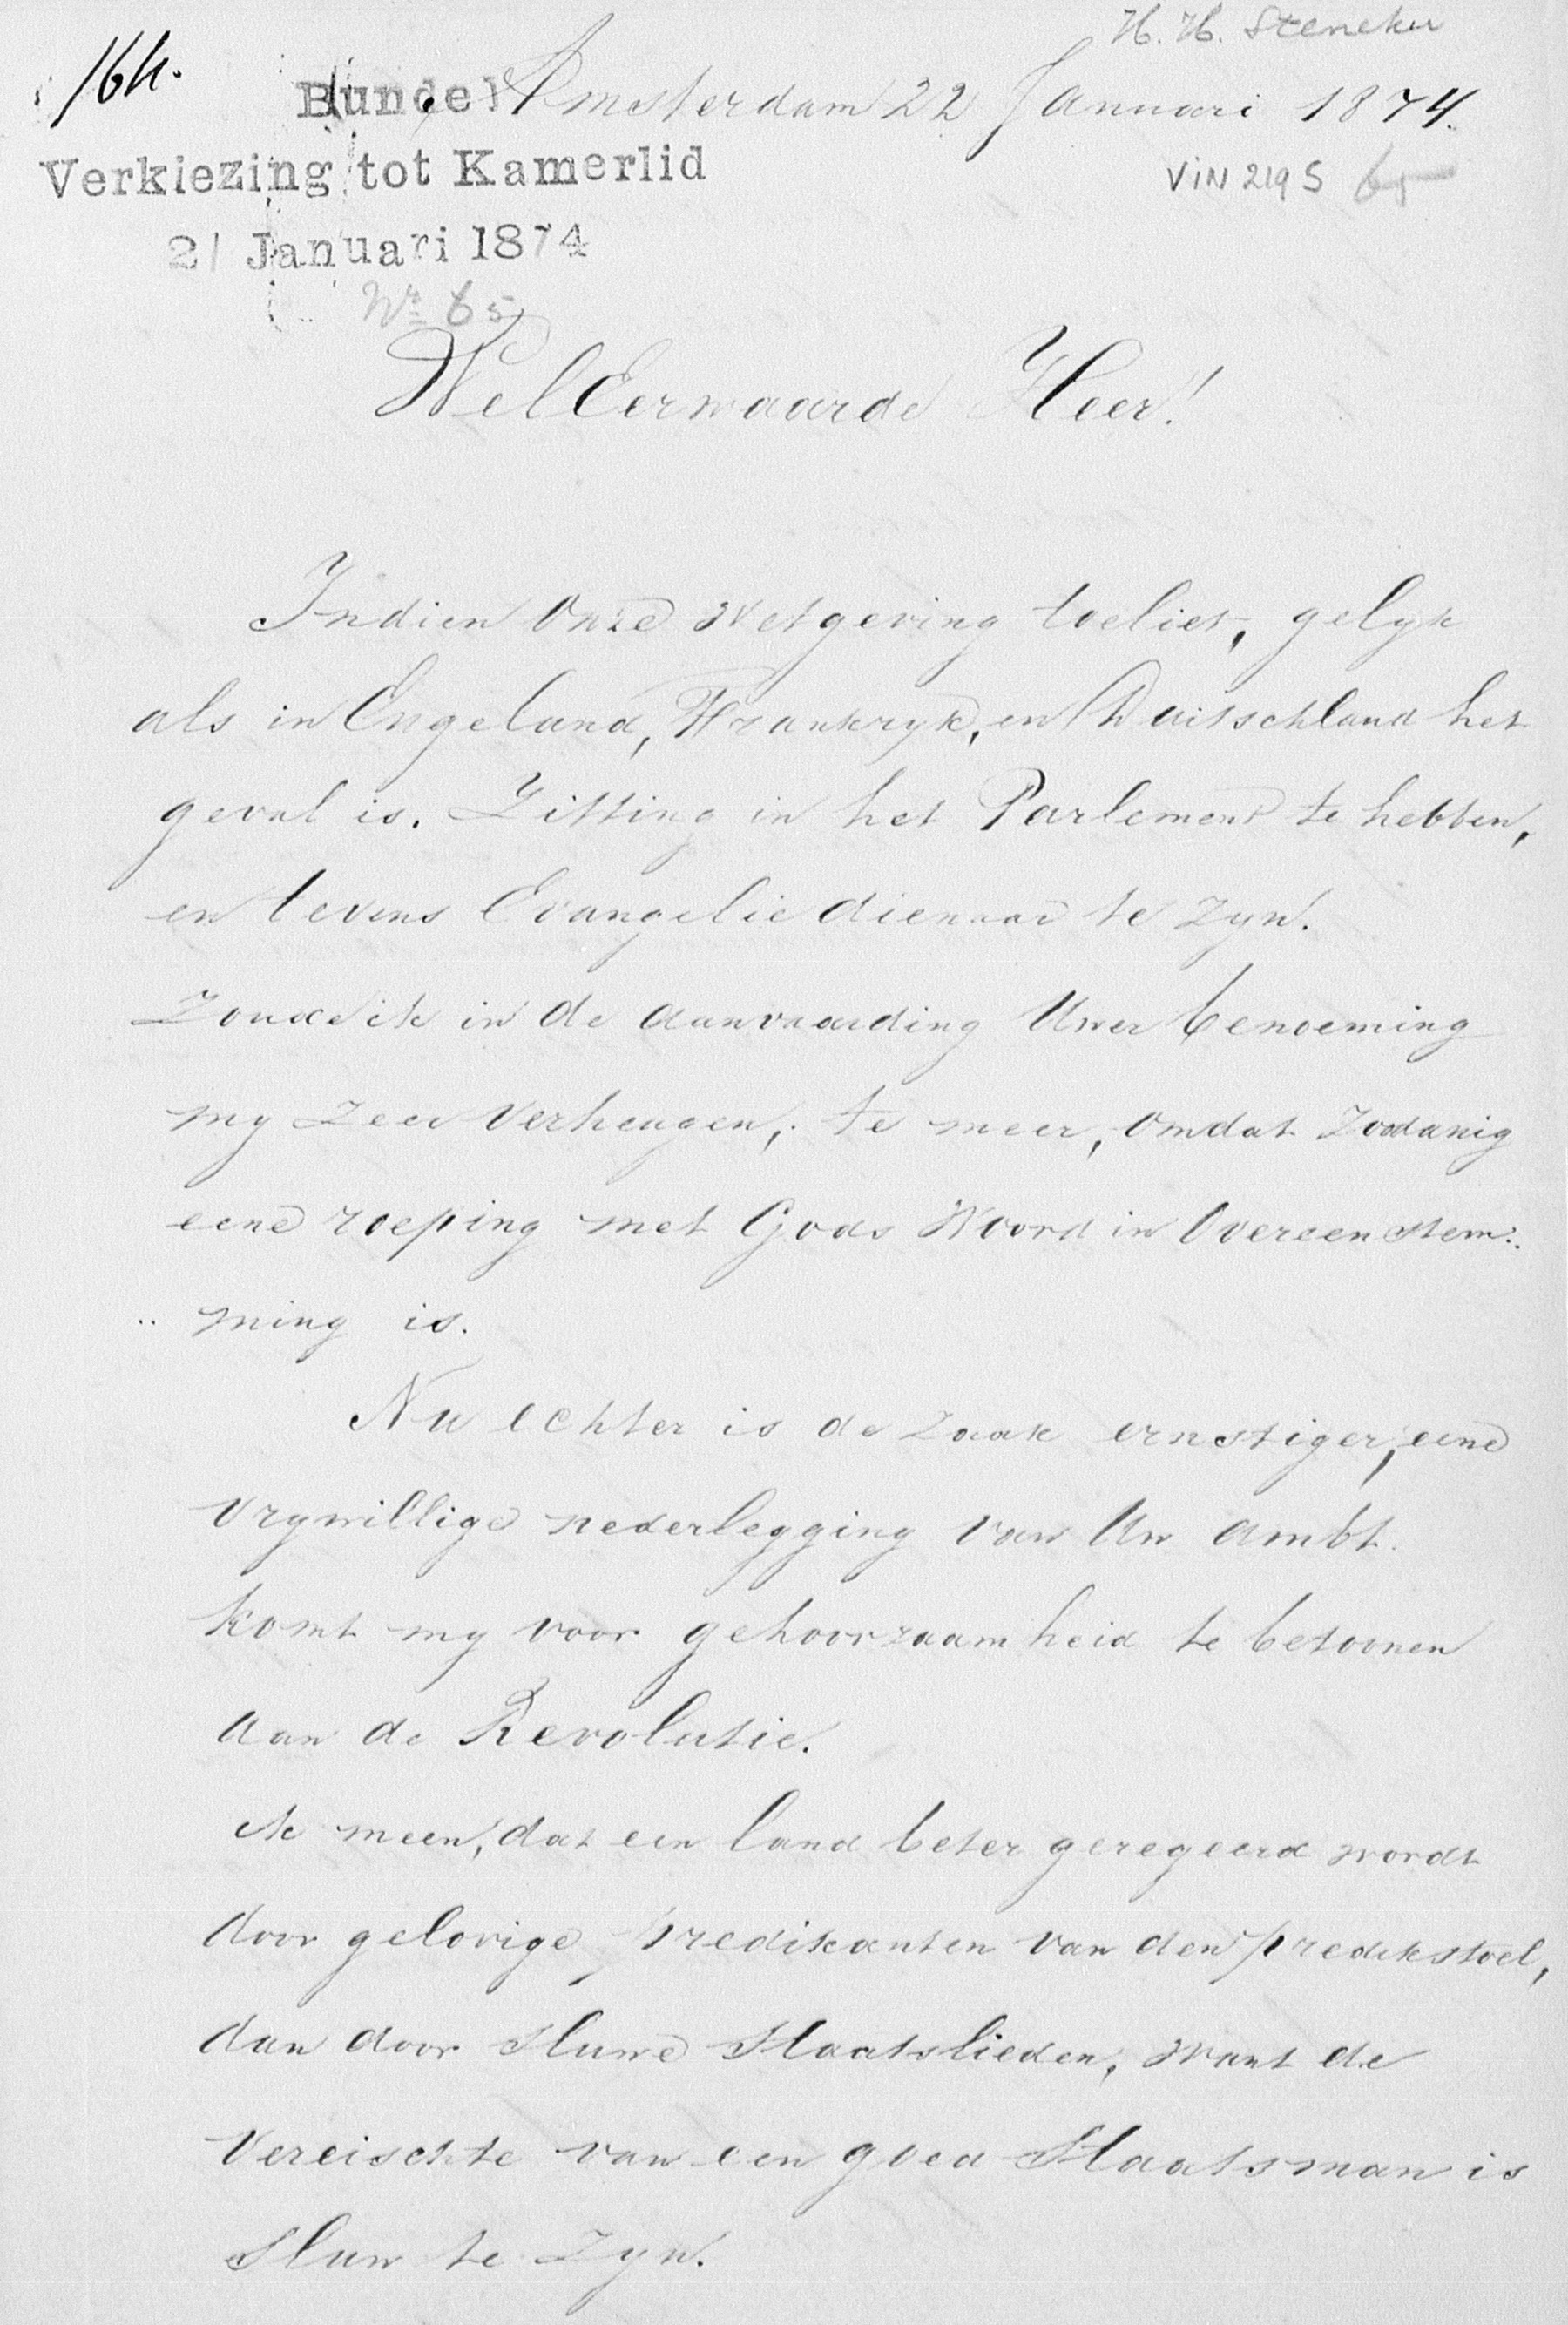 H. H. Steneker
164.
Bundel Amsterdam 22 Januari 1874.
Verkiezing tot Kamerlid
VIN 219 S 65
21 Januari 1874
No 65
WelEerwaarde Heer!
Indien onze wetgeving toeliet, gelyk
als in Engeland, Frankryk, en Duitschland het
geval is. Zitting in het Parlement te hebben,
en tevens Evangelie dienaar te zyn.
Zoude ik in de aanvaarding Uwer benoeming
my zeer verheugen, te meer, omdat zoodanig
eene roeping met Gods Woord in Overeenstem:
.. ming is.
Nu echter is de zaak ernstiger, eene
vrywillige nederlegging van Uw ambt.
komt my voor gehoorzaamheid te betoonen
aan de Revolutie.
Ik meen, dat een land beter geregeerd wordt
door gelovige predikanten van den predikstoel,
dan door sluwe Staatslieden, want de
vereischte van een goed Staatsman is
Sluw te zyn.